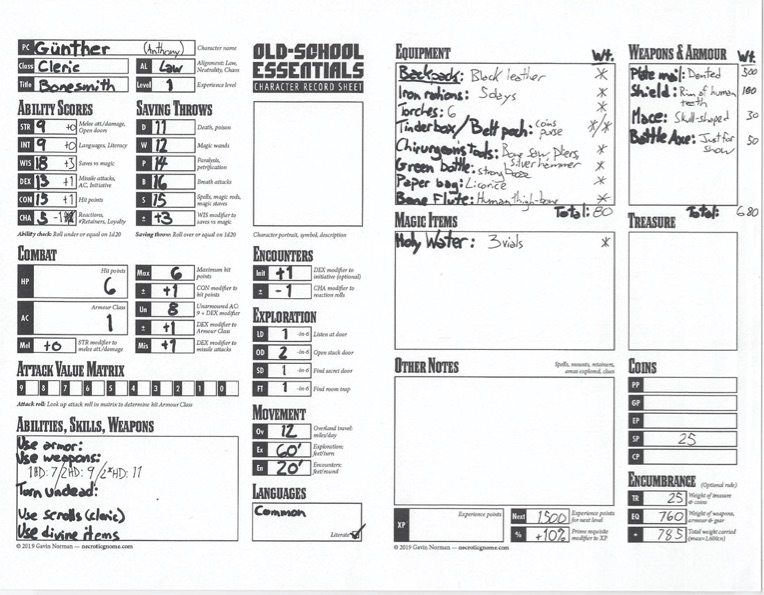 PC Günther (Anthony) Character name
Class Cleric AL Law Alignment: Law, Neutrality, Chaos
Title Bonesmith Level 1 Experience level
OLD-SCHOOL
ESSENTIALS
CHARACTER RECORD SHEET
ABILITY SCORES
STR 9 +0 Melee att/damage, Open doors
INT 9 +0 Languages, Literacy
WIS 18 +3 Saves vs magic
DEX 13 +1 Missile attacks, AC, Initiative
CON 15 +1 Hit points
CHA -1 Reactions, #Retainers, Loyalty
Ability check: Roll under or equal on 1d20
SAVING THROWS
D 11 Death, poison
W 12 Magic wands
P 14 Paralysis, petrification
B 16 Breath attacks
S 15 Spells, magic rods, magic staves
± +3 WIS modifier to saves vs magic
Saving throw: Roll over or equal on 1d20
Character portrait, symbol, description
COMBAT
HP 6 Hit points
AC 1 Armour Class
Mel +0 STR modifier to melee att./damage
Max 6 Maximum hit points
± +1 CON modifier to hit points
Un 8 Unarmoured AC: 9 + DEX modifier
± +1 DEX modifier to Armour Class
Mis +1 DEX modifier to missile attacks
ATTACK VALUE MATRIX
9 8 7 6 5 4 3 2 1 0
Attack roll: Look up attack roll in matrix to determine hit Armour Class
ABILITIES, SKILLS, WEAPONS
Use armor:
Use weapons:
1HD: 7/2HD: 9/2*HD: 11
Turn undead:
Use scrolls (cleric)
Use divine items
ENCOUNTERS
Init +1 DEX modifier to initiative (optional)
± -1 CHA modifier to reaction rolls
EXPLORATION
LD 1 -in-6 Listen at door
OD 2 -in-6 Open stuck door
SD 1 -in-6 Find secret door
FT 1 -in-6 Find room trap
MOVEMENT
Ov 12 Overland travel: miles/day
Ex 60' Exploration: feet/turn
En 20' Encounters: feet/round
LANGUAGES
Common
Literate
© 2019 Gavin Norman — necroticgnome.com
EQUIPMENT Wt.
Backpack: Black leather *
Iron rations: 5 days *
Torches: 6 *
Tinderbox/Belt pouch: coins purse */*
Chirurgeons tools: Bone saw, Pliers, silver hammer *
Green bottle: strong booze *
Paper bag: Licorice *
Bone Flute: Human thigh-bone *
Total: 80
MAGIC ITEMS
Holy Water: 3 vials *
OTHER NOTES Spells, mounts, retainers, areas explored, clues
XP Experience points
Next 1500 Experience points for next level
% +10% Prime requisite modifier to XP
© 2019 Gavin Norman — necroticgnome.com
WEAPONS & ARMOUR Wt.
Plate mail: Dented 500
Shield: Rim of human teeth 100
Mace: Skull-shaped 30
Battle Axe: Just for show 50
Total: 680
TREASURE
COINS
PP
GP
EP
SP 25
CP
ENCUMBRANCE (Optional rule)
TR 25 Weight of treasure & coins
EQ 760 Weight of weapons, armour & gear
+ 785 Total weight carried (max=1,600cn)